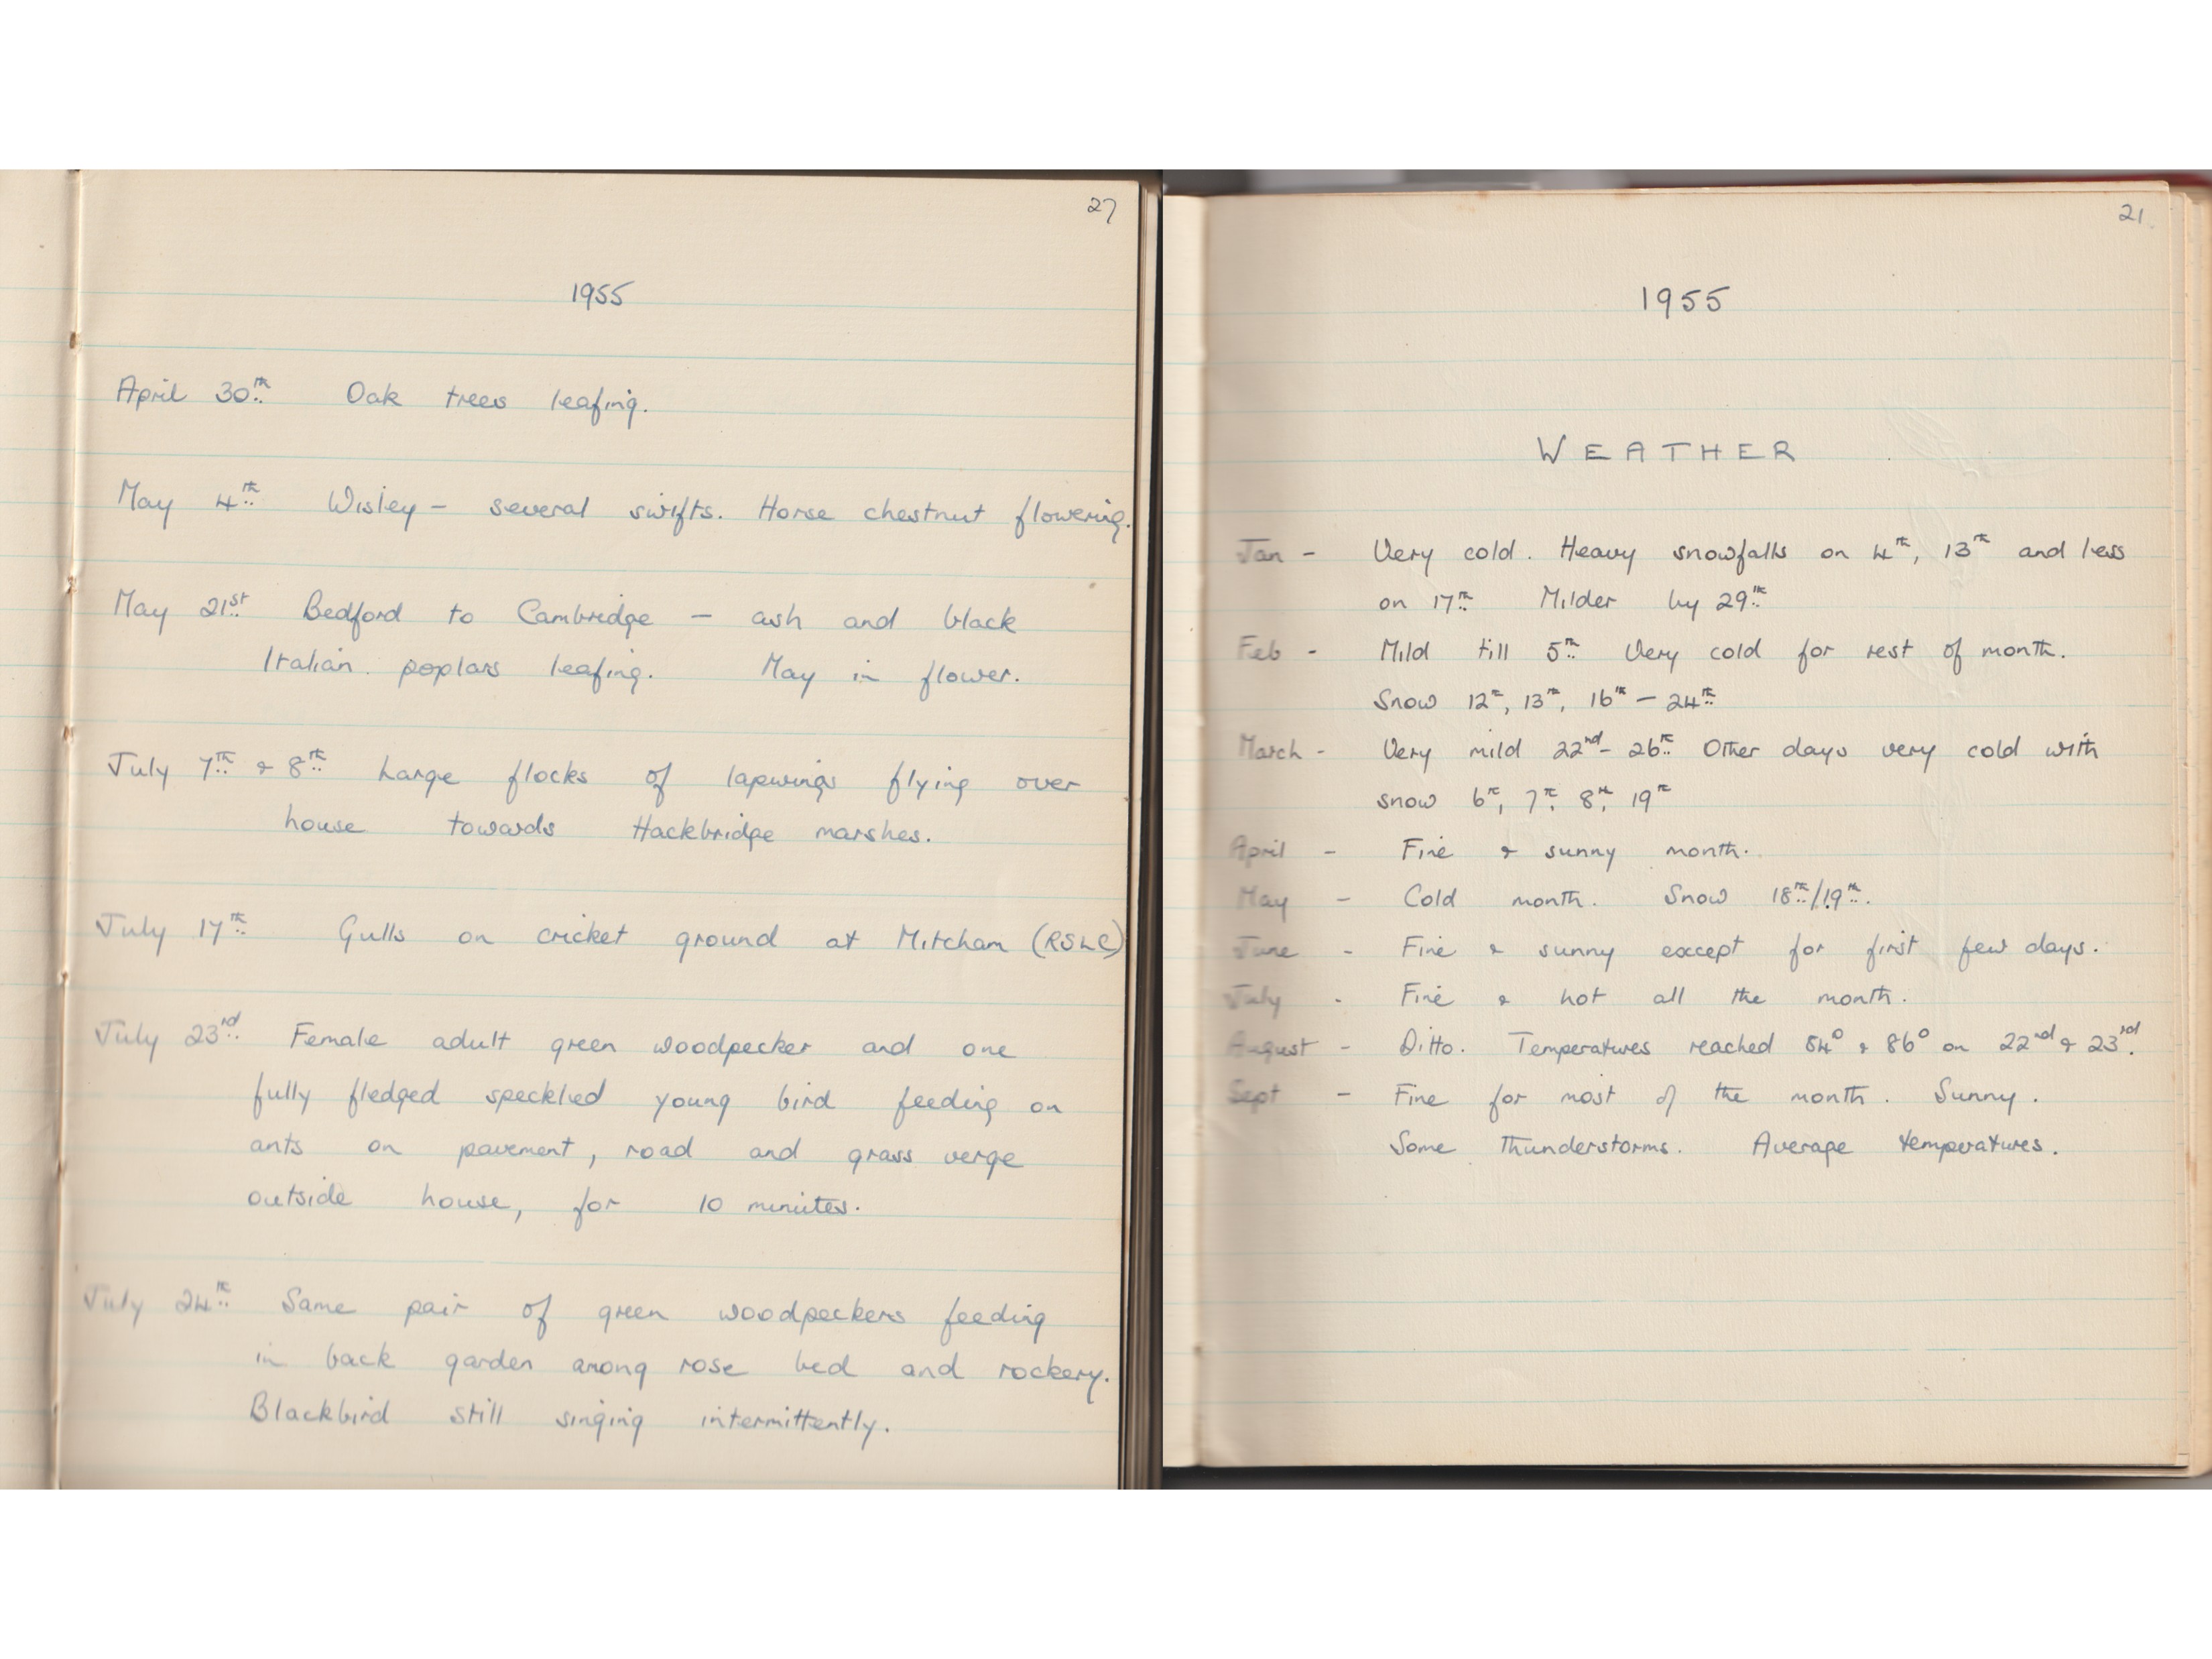 27
1955
April 30th Oak trees leafing.
May 4th Wisley - several swifts. Horse chestnut flowering.
May 21st Bedford to Cambridge - ash and black
Italian poplars leafing. May in flower.
July 7th & 8th Large flocks of lapwings flying over
house towards Hackbridge marshes.
July 17th Gulls on cricket ground at Mitcham (RSLC)
July 23rd Female adult green woodpecker and one
fully fledged speckled young bird feeding on
ants on pavement, road and grass verge
outside house, for 10 minutes.
July 24th Same pair of green woodpeckers feeding
in back garden among rose bed and rockery.
Blackbird still singing intermittently.
21
1955
WEATHER
Jan - Very cold. Heavy snowfalls on 4th, 13th and less
on 17th Milder by 29th
Feb - Mild till 5th Very cold for rest of month.
Snow 12th, 13th, 16th - 24th
March - Very mild 22nd - 26th Other days very cold with
snow 6th, 7th, 8th, 19th
April - Fine & sunny month.
May - Cold month. Snow 18th/19th.
June - Fine & sunny except for first few days.
July - Fine & hot all the month.
August - Ditto. Temperatures reached 84° & 86° on 22nd & 23rd.
Sept - Fine for most of the month. Sunny.
Some thunderstorms. Average temperatures.